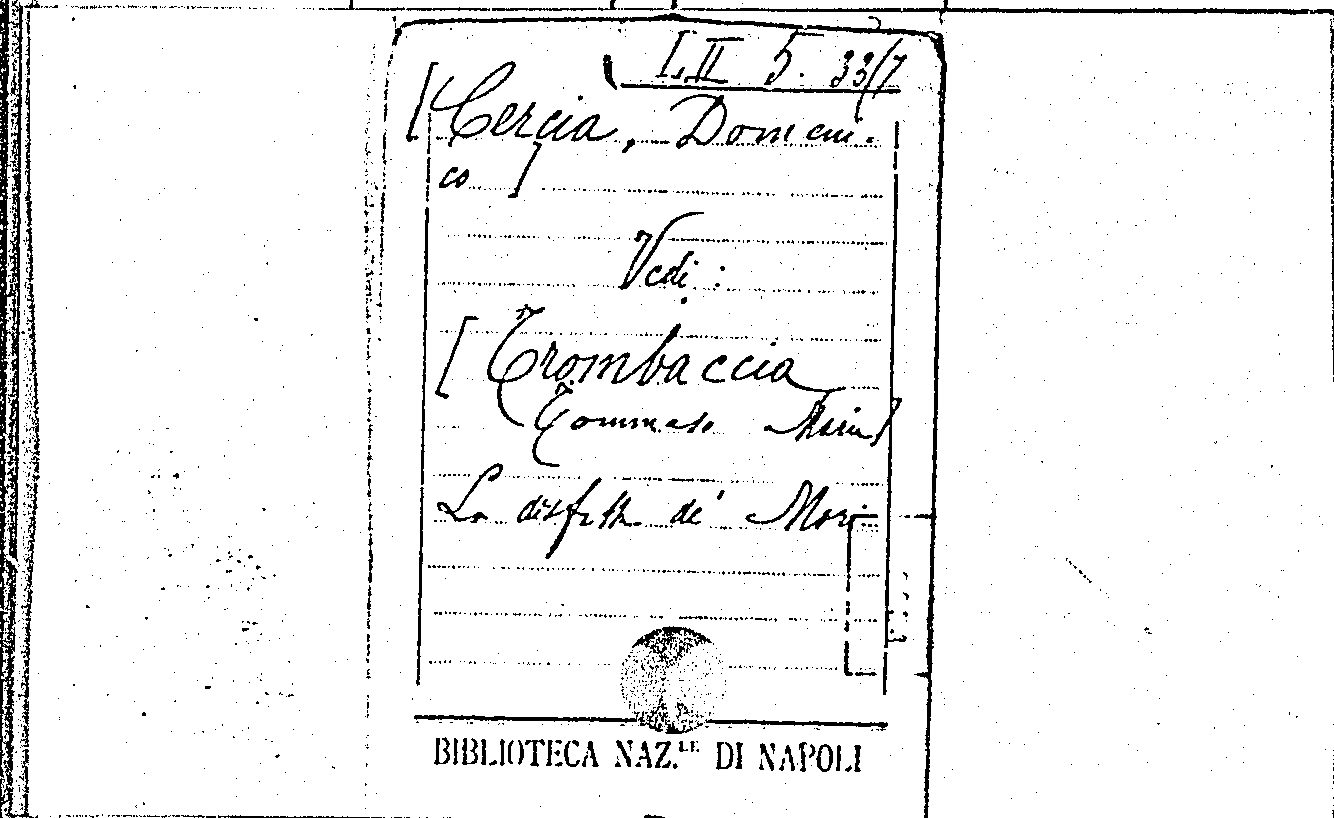 L.II 5. 33/7
[Cercia, Domeni-
co]
Vedi:
[Trombaccia
Tommaso Maria]
La disfatta de' Mori
BIBLIOTECA NAZ.LE DI NAPOLI